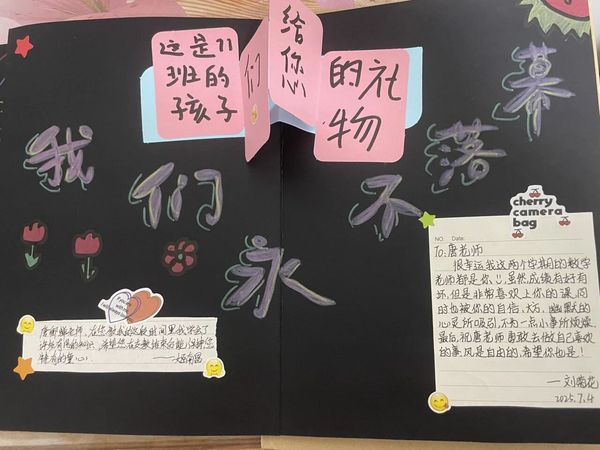 这是11
班的
孩子
们
给
你
的礼
物
我们永不落幕
cherry
camera
bag
NO. Date:
To:唐老师
很幸运我这两个学期的数学
老师都是你,虽然成绩有好有
坏,但是非常喜欢上你的课,同
时也被你的自信、大方、幽默的
心灵所吸引,不为一点小事所烦燥.
最后,祝唐老师勇敢去做自己喜欢
的事,风是自由的,希望你也是!
——刘菊花
2025.7.4
老师,在您教我的这段时间里我学会了
许多有用的知识,希望您在支教结束后能保持您
独有的童心